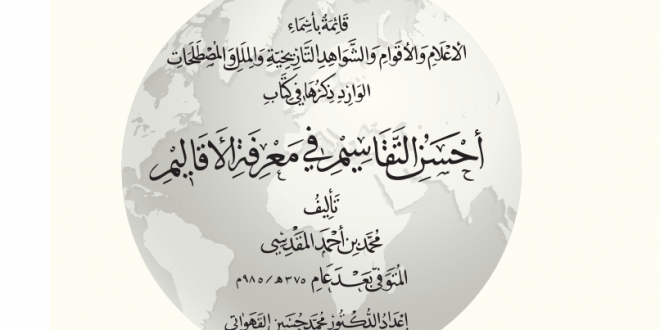 قَائِمَةٌ بِأَسْمَاءِ
الأَعْلَامِ وَالأَقْوَامِ وَالشَّوَاهِدِ التَّارِيخِيَّةِ وَالمِلَلِ وَالمُصْطَلَحَاتِ
الوَارِدِ ذِكْرُهَا فِي كِتَابِ
أَحْسَنُ التَّقَاسِيمِ فِي مَعْرِفَةِ الأَقَالِيمِ
تَأْلِيفُ
مُحَمَّد بن أَحْمَد المَقْدِسِي
المُتَوَفَّى بَعْدَ عَامِ ٣٧٥هـ/٩٨٥م
إِعْدَادُ الدُّكْتُورِ مُحَمَّد حُسَيْن القَهْوَاتِي